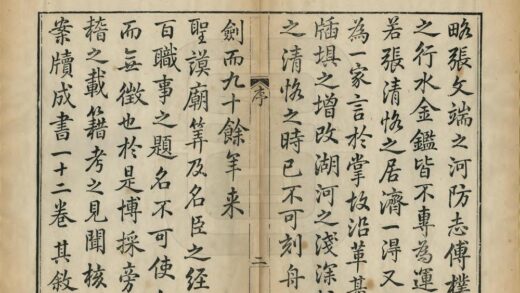 略張文端之河防志傅
之行水金鑑皆不專為運
若張清恪之居濟一得又
為一家言於掌故沿革
牐埧之增改湖河之淺深
之清恪之時已不可刻舟
序
二
劍而九十餘年来
聖謨廟筭及名臣之經
百職事之題名不可使
而無徵也於是博採旁
稽之載籍考之見聞核
案牘成書一十二卷其敘